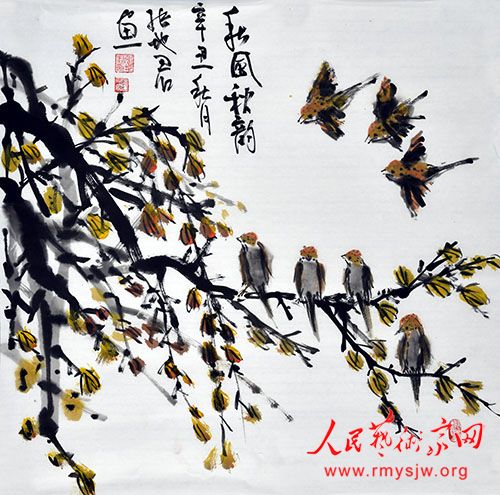 秋風秋韵
辛丑秋月
画
人民艺术家网
www.rmysjw.org